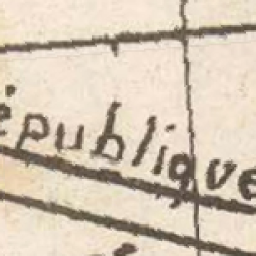 épublique